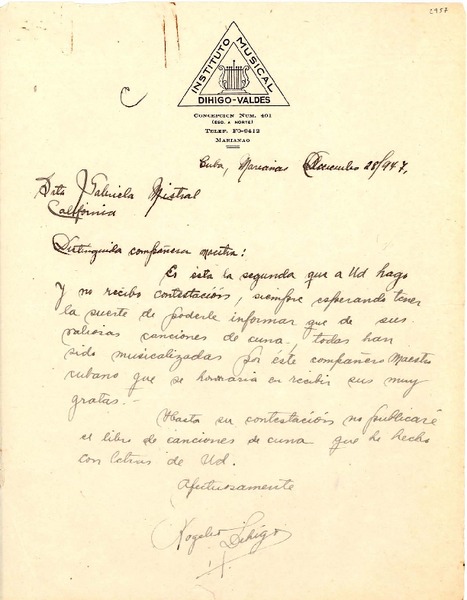 2957
INSTITUTO MUSICAL
DIHIGO-VALDES
CONCEPCION NUM. 401
(ESQ. A NORTE)
TELEF. FO-9412
MARIANAO
Cuba, Marianao 28/947.
Srta Gabriela Mistral
California
Distinguida compañera maestra:
Es ésta la segunda que a Ud hago
y no recibo contestación, siempre esperando tener
la suerte de poderle informar que de sus
valiosas canciones de cuna, todas han
sido musicalizadas por éste compañero Maestro
cubano que se honraria en recibir sus muy
gratas.-
Hasta su contestación no publicaré
el libro de canciones de cuna que he hecho
con letras de Ud.
Afectuosamente
Rogelio Dihigo